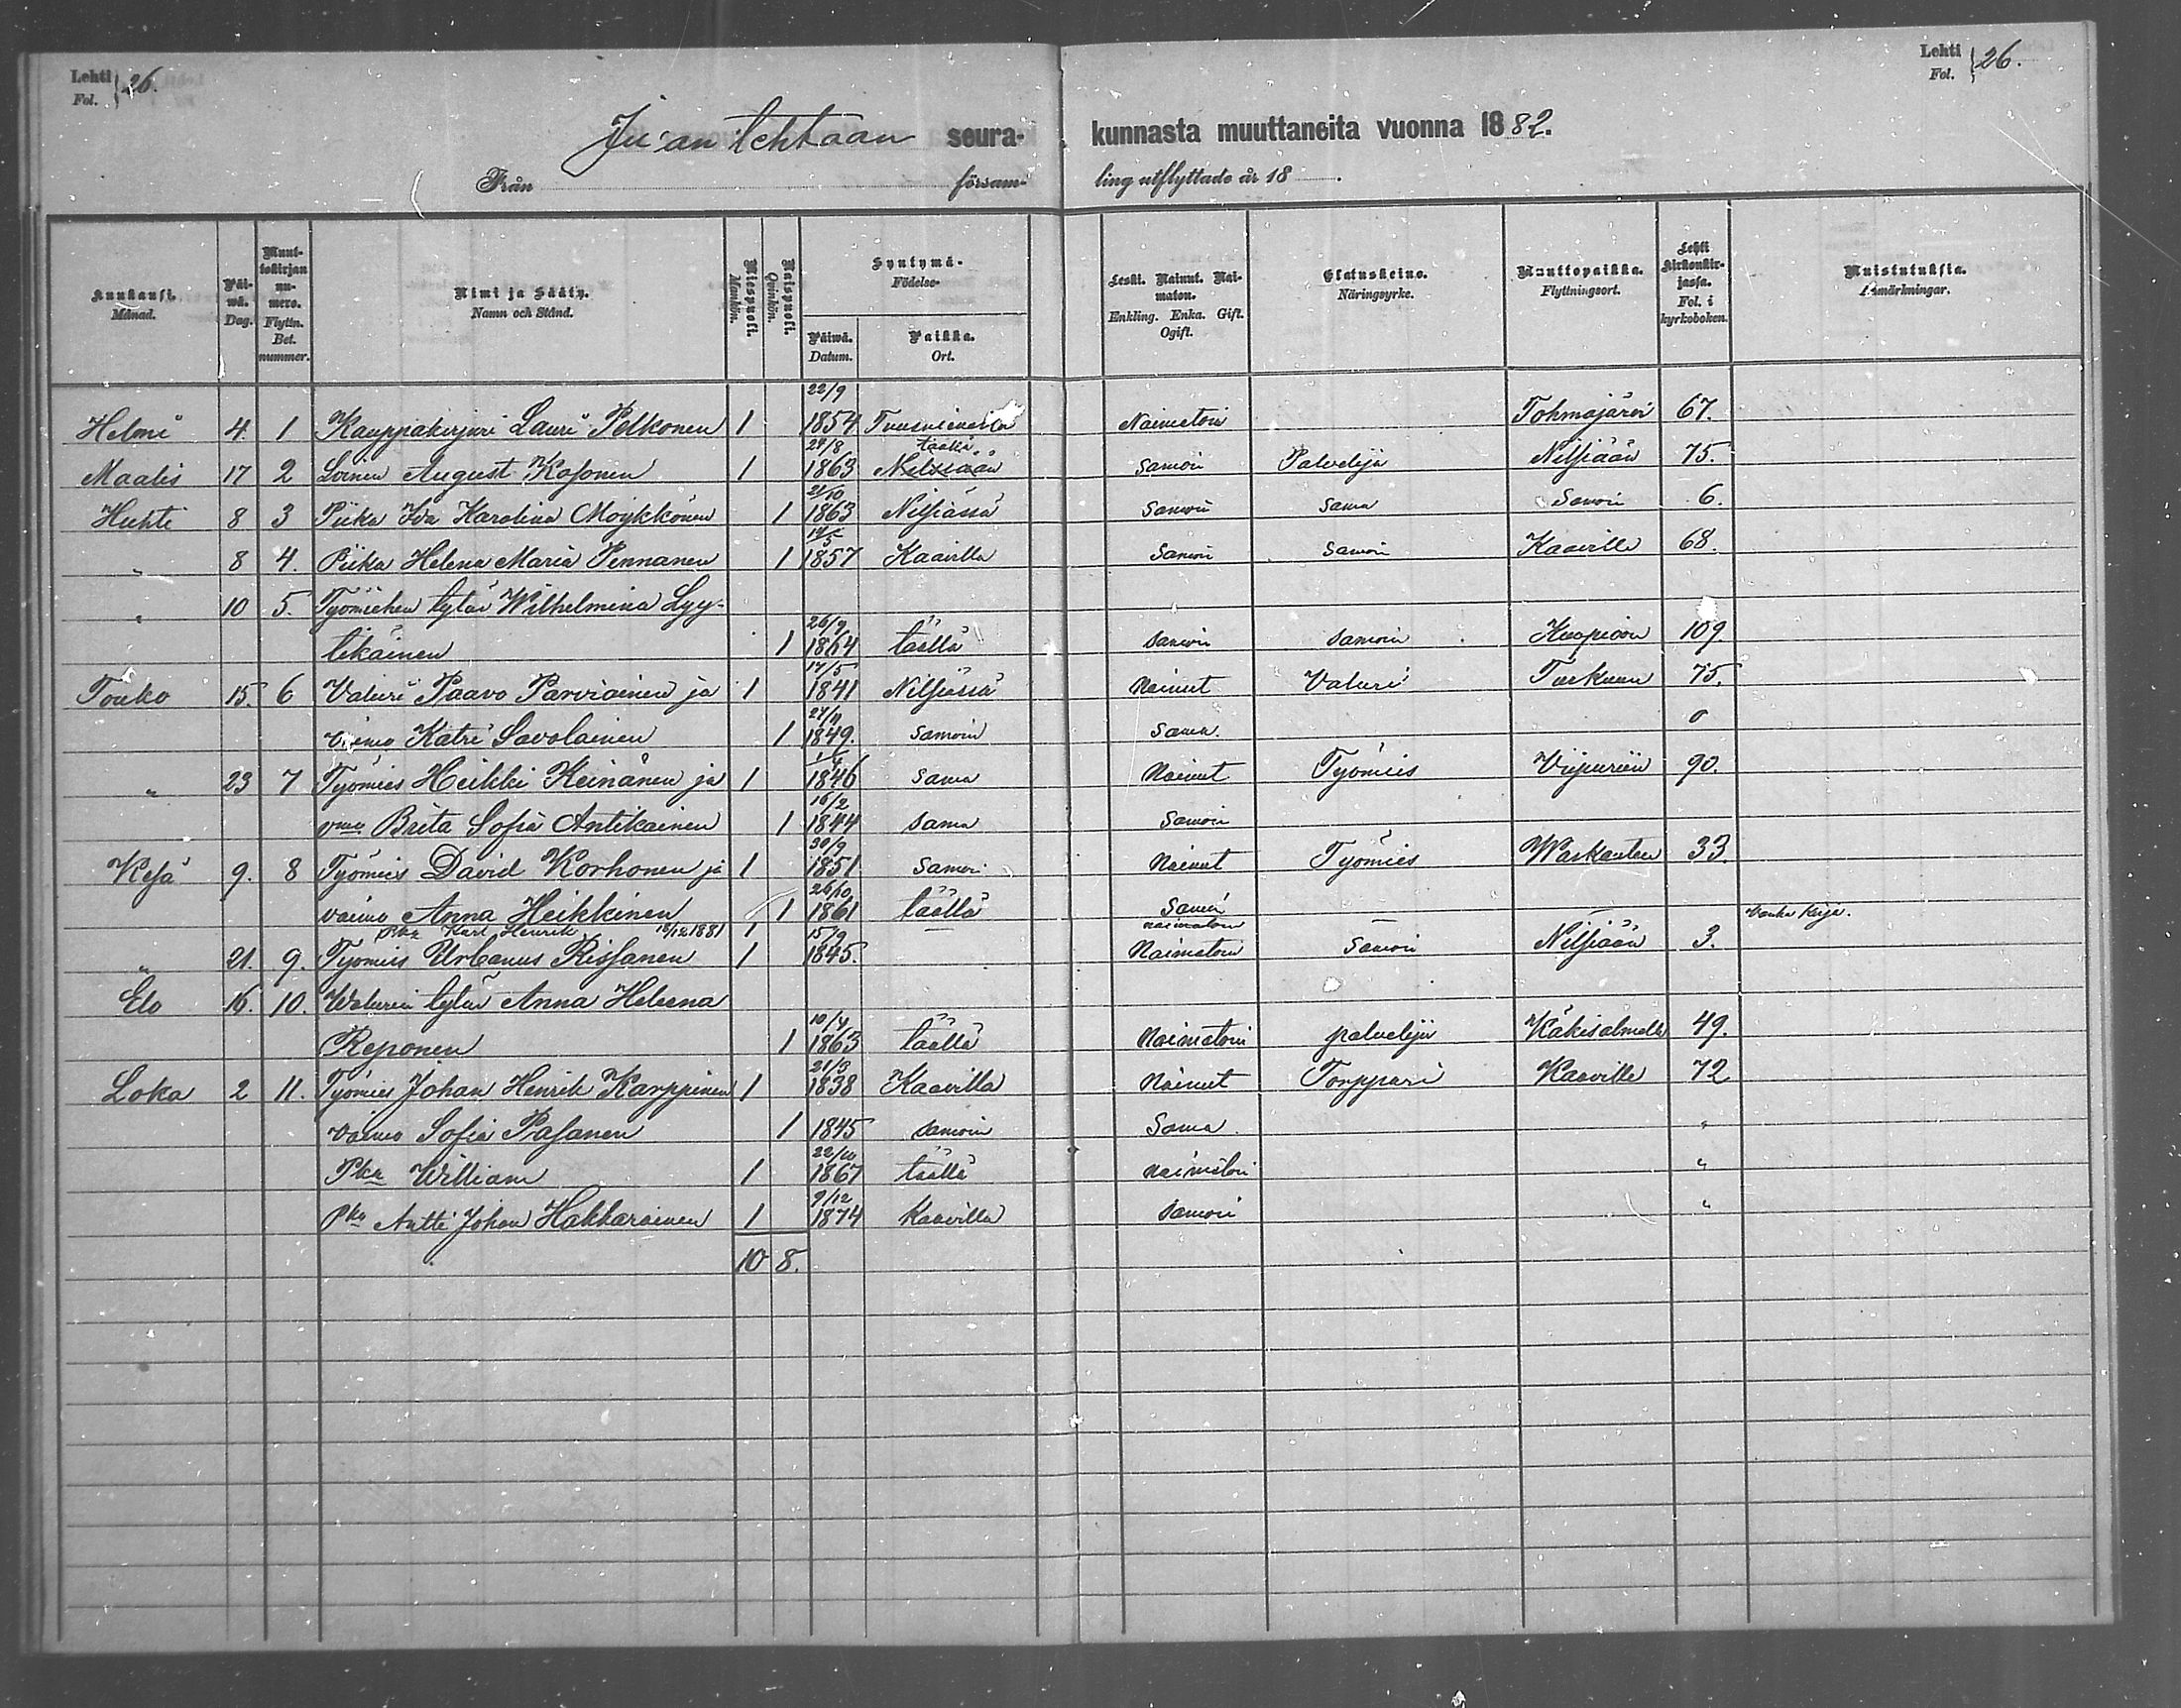 Lehti 26.
Fol.
Lehti 26.
Fol.
Juu:an tehtaan seura- kunnasta muuttaneita vuonna 1882.
Från försam- ling utflyttade år 18 .
Kuukausi. Månad.
Päivä. Dag.
Muuttokirjan numero. Flyttn. Bet. nummer.
Nimi ja Sääty. Namn och Stånd.
Miespuoli. Mankön.
Naispuoli. Qvinkön.
Syntymä- Födelse-
Päiwä. Datum.
Paikka. Ort.
Leski. Nainut. Naimaton. Enkling. Enka. Gift. Ogift.
Elatuskeino. Näringsyrke.
Muuttopaikka. Flyttningsort.
Lehti kirkonkirjassa. Fol. i kyrkoboken.
Muistutuksia. Anmärkningar.
Helmi 4. 1 Kauppakirjuri Lauri Pelkonen 1 22/9 1854 Naimatoin Tohmajärvi 67.
Maalis 17 2 Loinen August Kosonen 1 24/8 1863 täällä Nilsiään samoin Palvelija Nilsiään 75.
Huhti 8 3 Piika Ida Karolina Moykkönen 1 21/10 1863 Nilsiässä samoin sama samoin 6.
" 8 4. Piika Helena Maria Pennanen 1 14/5 1857 Kaavilla samoin samoin Kaaville 68.
" 10 5. Työmiehen tytär Wilhelmina Lyy-
tikäinen 1 26/9 1864 täällä samoin samoin Kuopioon 109.
Touko 15. 6 Valuri Paavo Parviainen ja 1 17/5 1841 Nilsiässä Nainut Valuri Turkuun 75.
vaimo Katri Savolainen 1 27/11 1849. samoin sama.
" 23 7 Työmies Heikki Keinänen ja 1 1846 sama Nainut Työmies Viipuriin 90.
vmo Brita Sofia Antikainen 1 16/2 1844 sama samoin
Kesä 9. 8 Työmies David Korhonen ja 1 30/9 1851 samoin Nainut Työmies Warkauteen 33.
vaimo Anna Heikkinen 1 26/10 1861 täällä samoin
Pka Karl Henrik 18/12 1881 1 naimatoin
" 21. 9. Työmies Urbanus Rissanen 1 15/9 1845. Naimatoin samoin Nilsiään 3. Vanha kirja.
Elo 16. 10. Walurin tytär Anna Heleena
Reponen 1 10/4 1863 täällä Naimatoin palvelija Käkisalmelle 49.
Loka 2 11. Työmies Johan Henrik Karppinen 1 21/3 1838 Kaavilla Nainut Torppari Kaaville 72
vaimo Sofia Pasanen 1 1845 samoin Sama. "
Pka William 1 22/10 1867 täällä naimatoin "
Pka Antti Johan Hakkarainen 1 9/12 1874 Kaavilla samoin "
10 8.